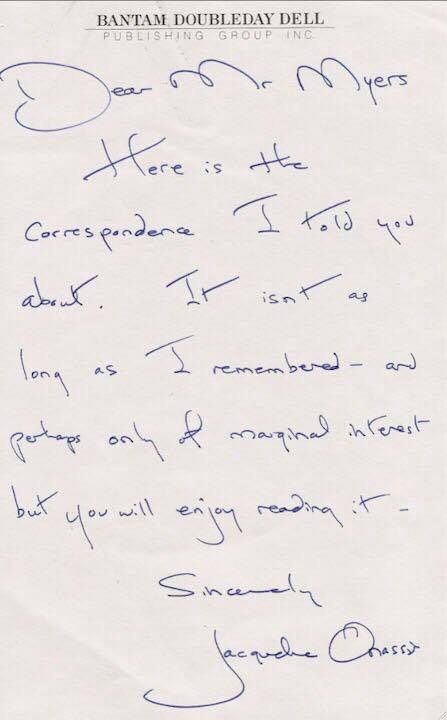 BANTAM DOUBLEDAY DELL
PUBLISHING GROUP INC.
Dear Mr Myers
Here is the
Correspondence I told you
about. It isnt as
long as I remembered – and
perhaps only of marginal interest
but you will enjoy reading it –
Sincerely
Jacqueline Onassis